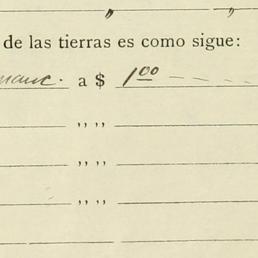 " "
de las tierras es como sigue:
a $ 1.00
" "
" "
" "